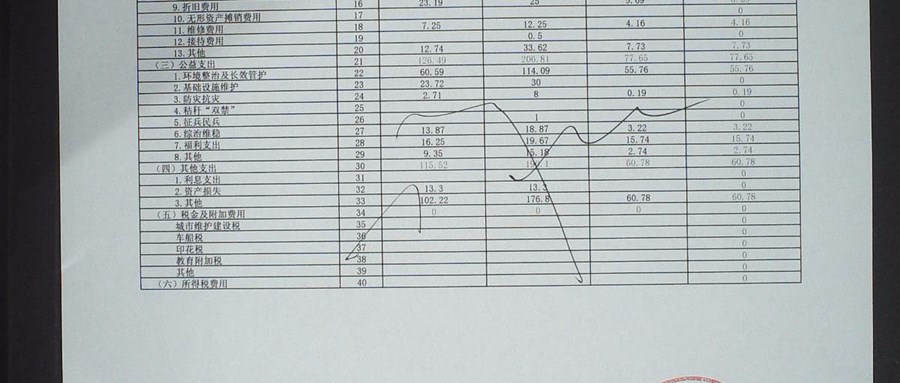 9.折旧费用 16 23.19 25
10.无形资产摊销费用 17 0
11.维修费用 18 7.25 12.25 4.16 4.16
12.接待费用 19 0.5 0
13.其他 20 12.74 33.62 7.73 7.73
（三）公益支出 21 126.49 206.81 77.65 77.65
1.环境整治及长效管护 22 60.59 114.09 55.76 55.76
2.基础设施维护 23 23.72 30
3.防灾抗灾 24 2.71 8 0.19 0.19
4.秸秆“双禁” 25 0
5.征兵民兵 26 1 0
6.综治维稳 27 13.87 18.87 3.22 3.22
7.福利支出 28 16.25 19.67 15.74 15.74
8.其他 29 9.35 15.18 2.74 2.74
（四）其他支出 30 115.52 190.1 60.78 60.78
1.利息支出 31 0
2.资产损失 32 13.3 13.3 0
3.其他 33 102.22 176.8 60.78 60.78
（五）税金及附加费用 34 0 0 0 0
城市维护建设税 35 0
车船税 36 0
印花税 37 0
教育附加税 38 0
其他 39 0
（六）所得税费用 40 0